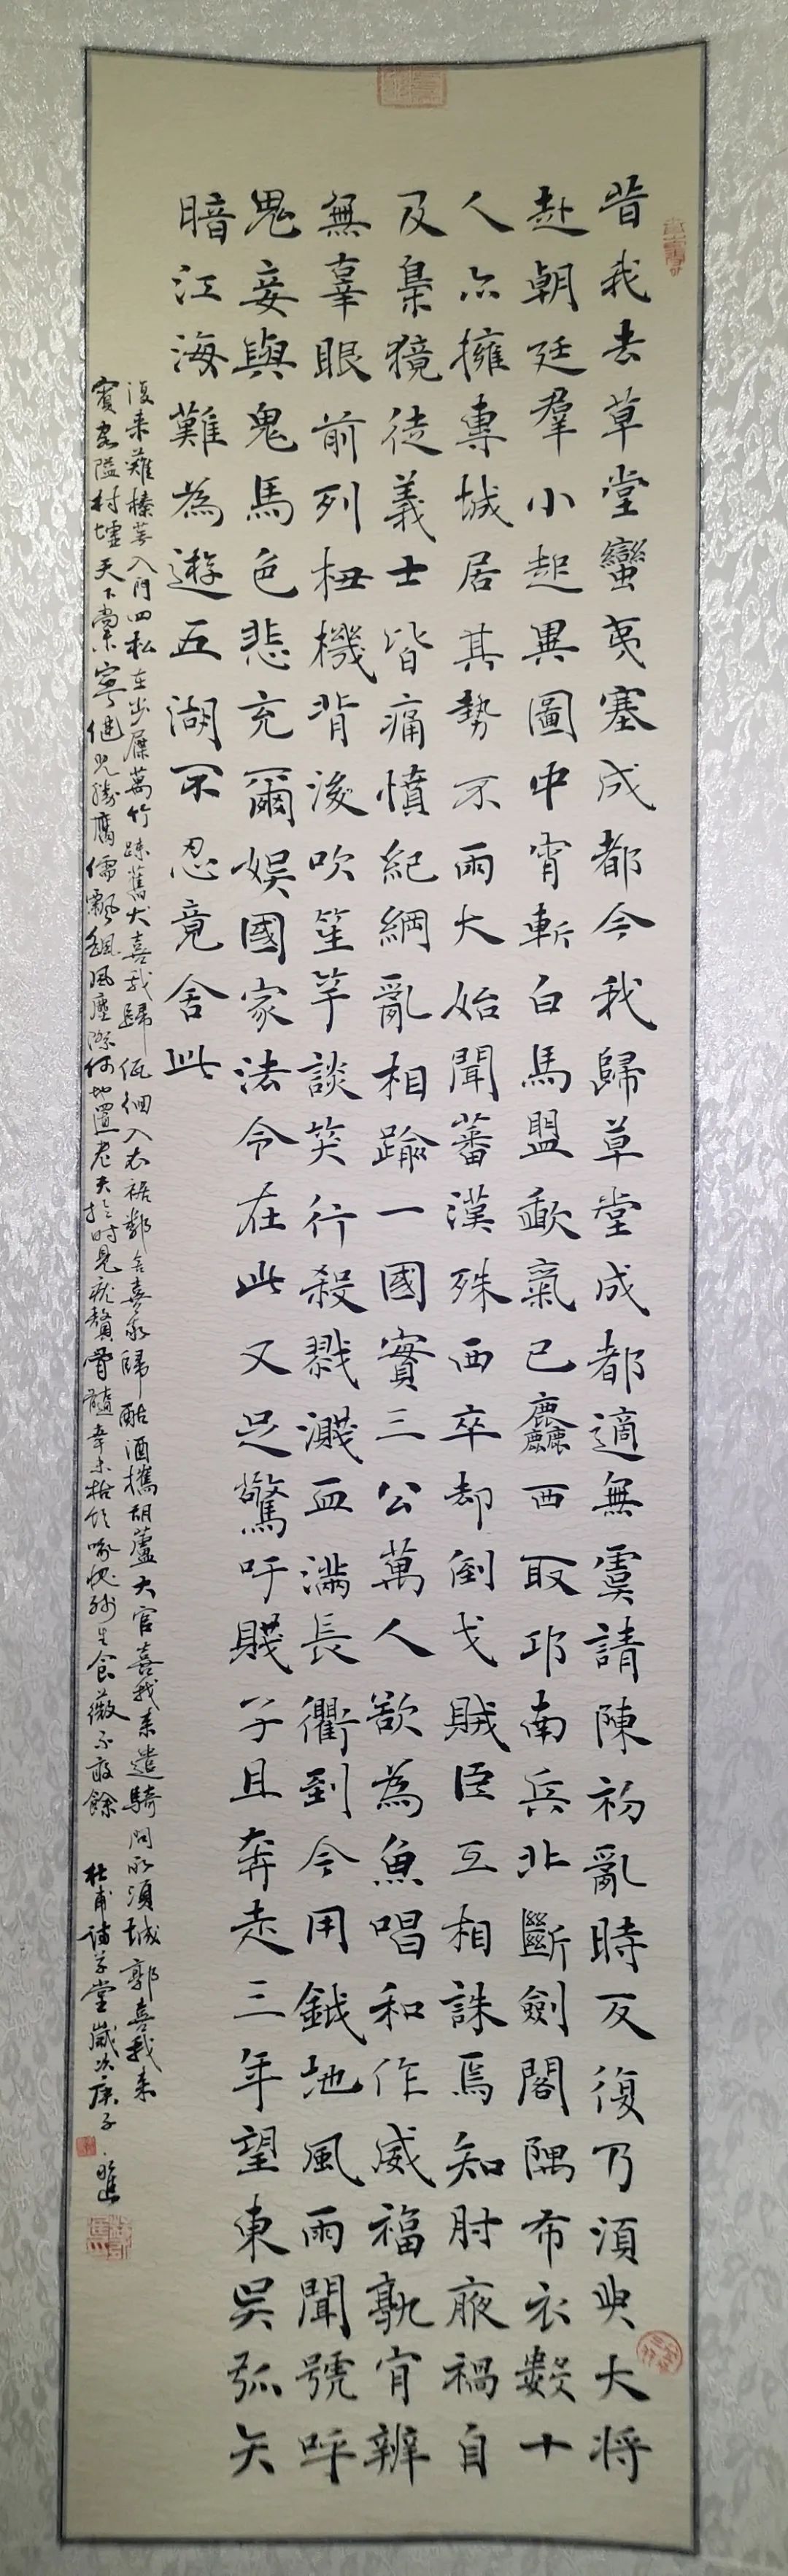 昔我去草堂蠻夷塞成都今我歸草堂成都適無虞請陳初亂時反復乃須臾大將
赴朝廷羣小起異圖中宵斬白馬盟歃氣已麤西取邛南兵北斷劍閣隅布衣數十
人亦擁專城居其勢不兩大始聞蕃漢殊西卒却倒戈賊臣互相誅焉知肘腋禍自
及梟獍徒義士皆痛憤紀綱亂相踰一國實三公萬人欲為魚唱和作威福孰肯辨
無辜眼前列杻機背後吹笙竽談笑行殺戮濺血滿長衢到今用鉞地風雨聞號呼
鬼妾與鬼馬色悲充爾娛國家法令在此又足驚吁賤子且奔走三年望東吳弧矢
暗江海難為遊五湖不忍竟舍此
復來薙榛蕪入門四松在步屧萬竹疎舊犬喜我歸低徊入衣裾鄰舍喜我歸酤酒攜胡蘆大官喜我來遣騎問所須城郭喜我來
賓客隘村墟天下尚未寧健兒勝腐儒飄颻風塵際何地置老夫於時見疣贅骨髓幸未枯飲啄愧殘生食薇不敢餘 杜甫詩草堂歲次庚子